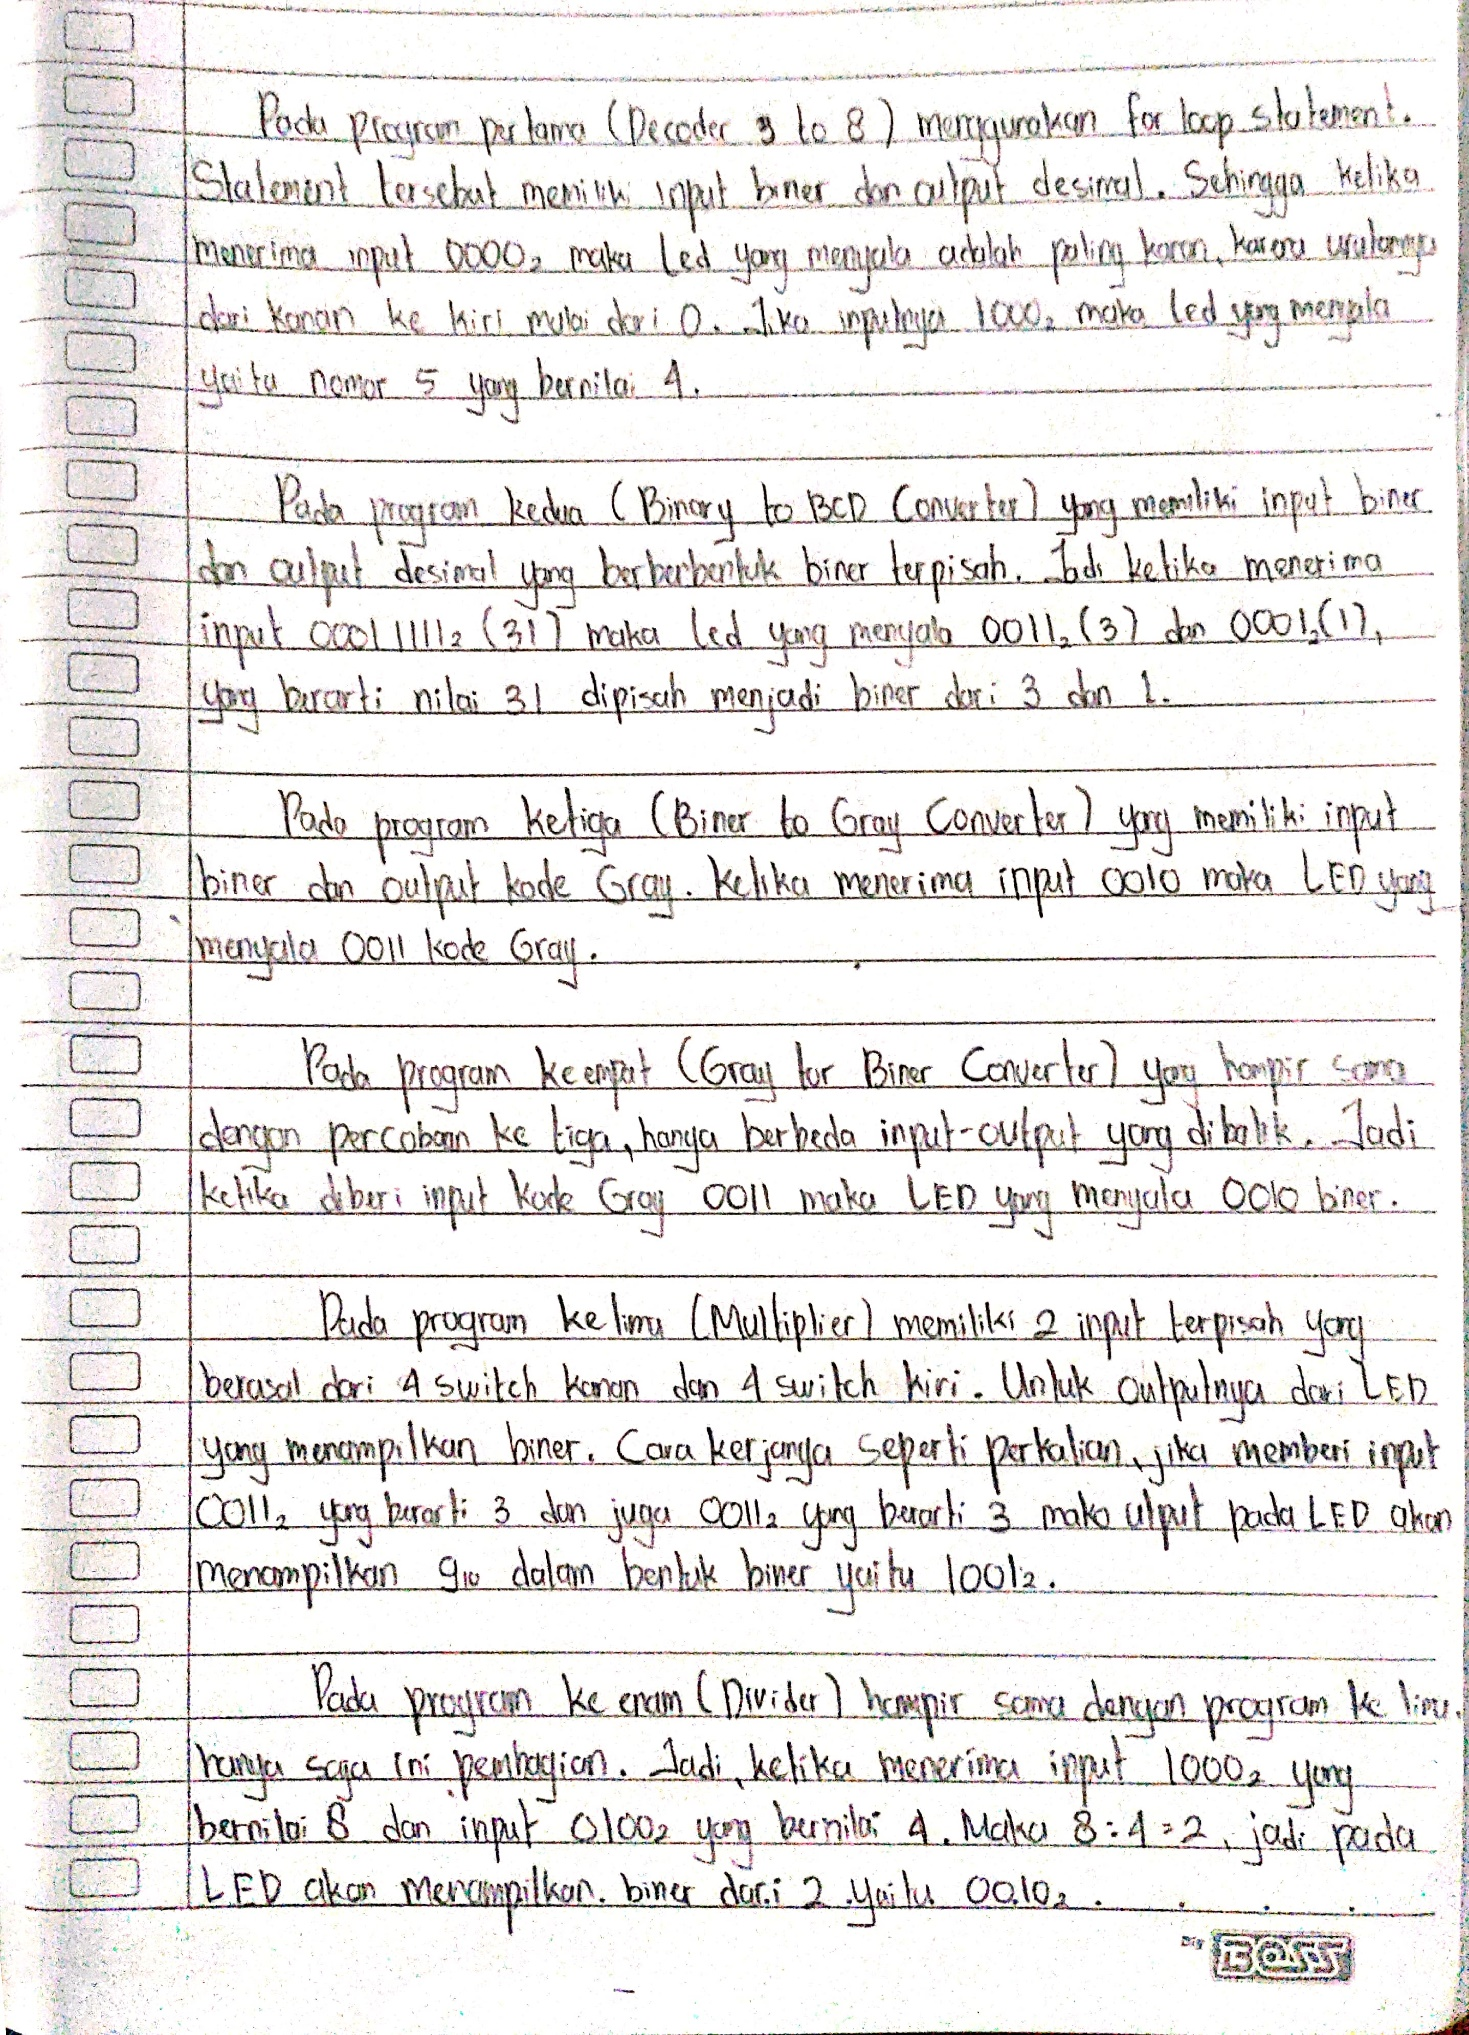 Pada program pertama (Decoder 3 to 8) menggunakan for loop statement.
Statement tersebut memiliki input biner dan output desimal. Sehingga ketika
menerima input 0000₂ maka led yang menyala adalah paling kanan, karena urutannya
dari kanan ke kiri mulai dari 0. Jika inputnya 1000₂ maka led yang menyala
yaitu nomor 5 yang bernilai 4.
Pada program kedua (Binary to BCD Converter) yang memiliki input biner
dan output desimal yang berberbentuk biner terpisah. Jadi ketika menerima
input 00011111₂ (31) maka led yang menyala 0011₂ (3) dan 0001₂ (1),
yang berarti nilai 31 dipisah menjadi biner dari 3 dan 1.
Pada program ketiga (Biner to Gray Converter) yang memiliki input
biner dan output kode Gray. Ketika menerima input 0010 maka LED yang
menyala 0011 kode Gray.
Pada program keempat (Gray tor Biner Converter) yang hampir sama
dengan percobaan ke tiga, hanya berbeda input-output yang dibalik. Jadi
ketika diberi input kode Gray 0011 maka LED yang menyala 0010 biner.
Pada program kelima (Multiplier) memiliki 2 input terpisah yang
berasal dari 4 switch kanan dan 4 switch kiri. Untuk outputnya dari LED
yang menampilkan biner. Cara kerjanya seperti perkalian, jika memberi input
0011₂ yang berarti 3 dan juga 0011₂ yang berarti 3 maka utput pada LED akan
menampilkan 9₁₀ dalam bentuk biner yaitu 1001₂.
Pada program ke enam (Divider) hampir sama dengan program ke lima.
hanya saja ini pembagian. Jadi, ketika menerima input 1000₂ yang
bernilai 8 dan input 0100₂ yang bernilai 4. Maka 8 : 4 = 2, jadi pada
LED akan menampilkan. biner dari 2 yaitu 0010₂.
BOSS